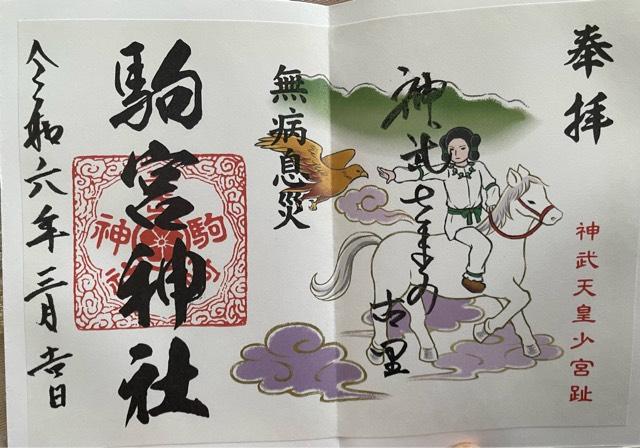 奉拝
神武天皇少宮趾
神武の古里
無病息災
駒宮神社
令和六年三月吉日